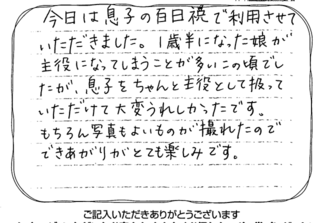 今日は息子の百日祝で利用させて
いただきました。1歳半になった娘が
主役になってしまうことが多いこの頃でし
たが、息子をちゃんと主役として扱って
いただけて大変うれしかったです。
もちろん写真もよいものが撮れたので
できあがりがとても楽しみです。
ご記入いただきありがとうございます